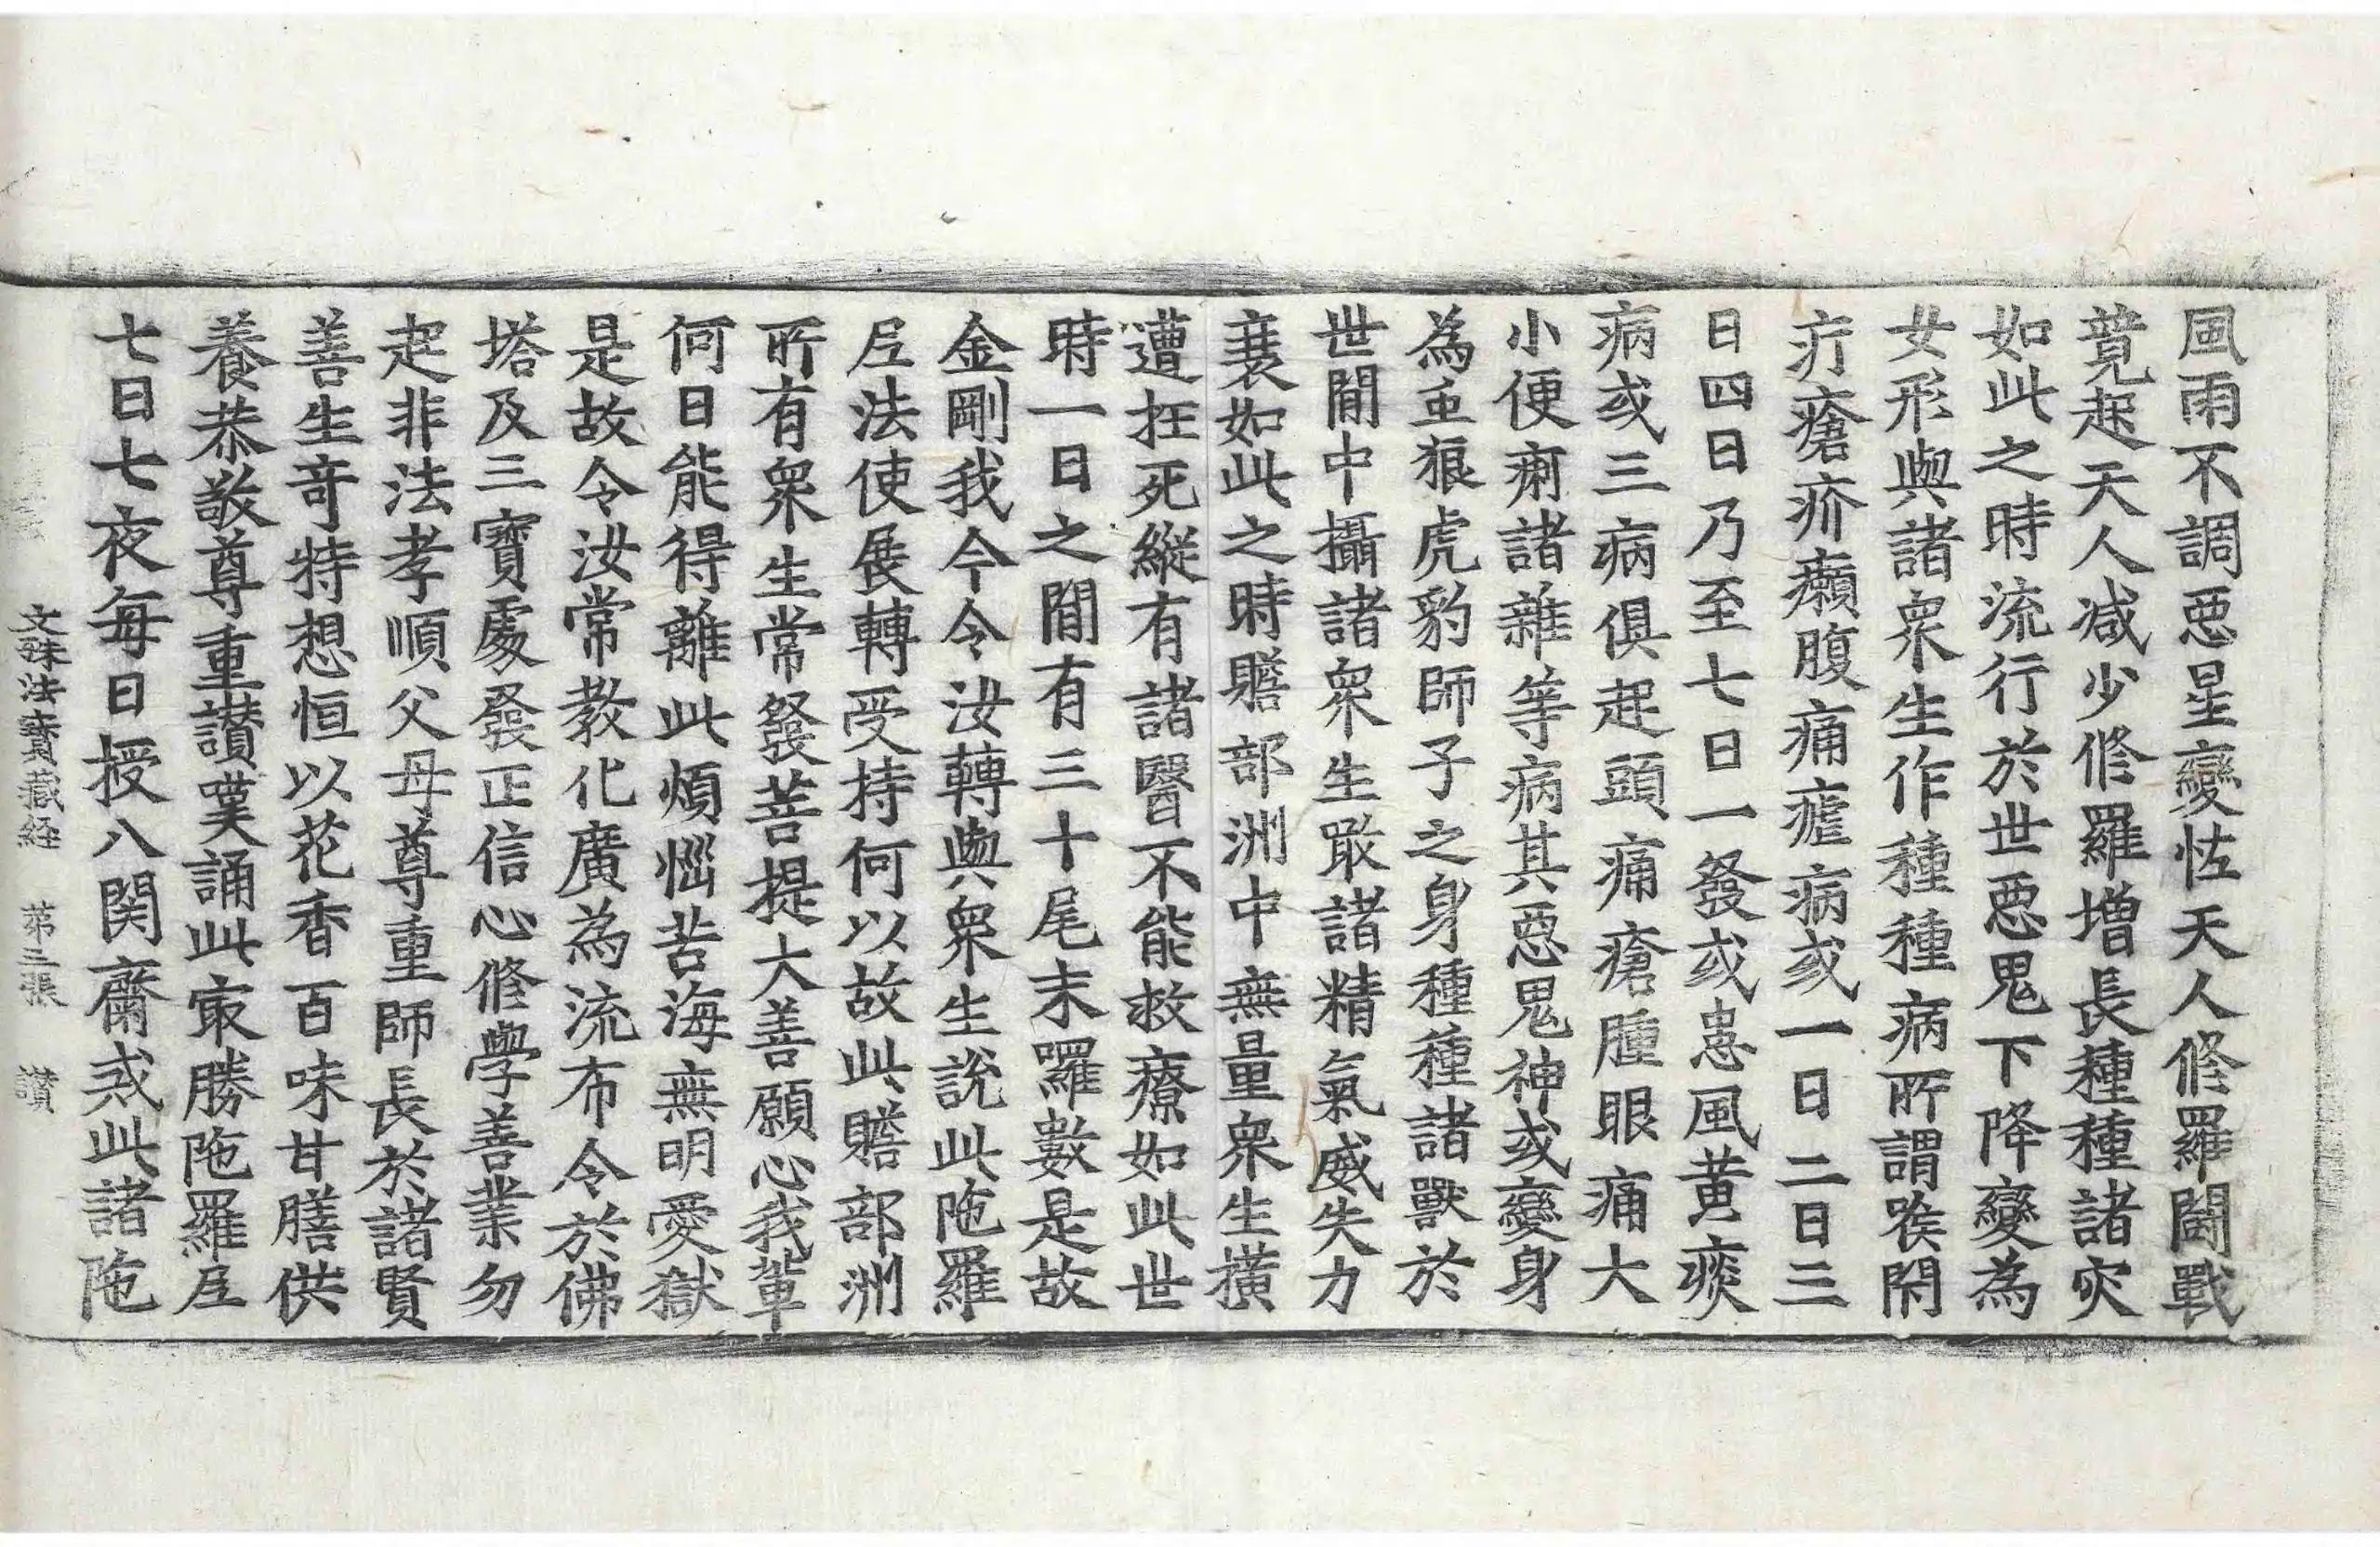 風雨不調惡星變恠天人修羅鬪戰
竟起天人减少修羅增長種種諸灾
如此之時流行於世惡鬼下降變為
女形與諸衆生作種種病所謂喉閇
疔瘡疥癩腹痛瘧病或一日二日三
日四日乃至七日一發或患風黃痰
病或三病俱起頭痛瘡腫眼痛大
小便痢諸雜等病其惡鬼神或變身
為虫狼虎豹師子之身種種諸獸於
世間中攝諸衆生取諸精氣威失力
衰如此之時贍部洲中無量衆生横
遭抂死縱有諸醫不能救療如此世
時一日之間有三十尾末囉數是故
金剛我今令汝轉與衆生說此陁羅
尼法使展轉受持何以故此贍部洲
所有衆生常發菩提大善願心我輩
何日能得離此煩惱苦海無明愛獄
是故令汝常教化廣為流布令於佛
塔及三寶處發正信心修學善業勿
起非法孝順父母尊重師長於諸賢
善生奇特想恒以花香百味甘膳供
養恭敬尊重讃嘆誦此冣勝陁羅尼
七日七夜每日授八関齋戒此諸陁
文殊法寶藏経　第三張　讃